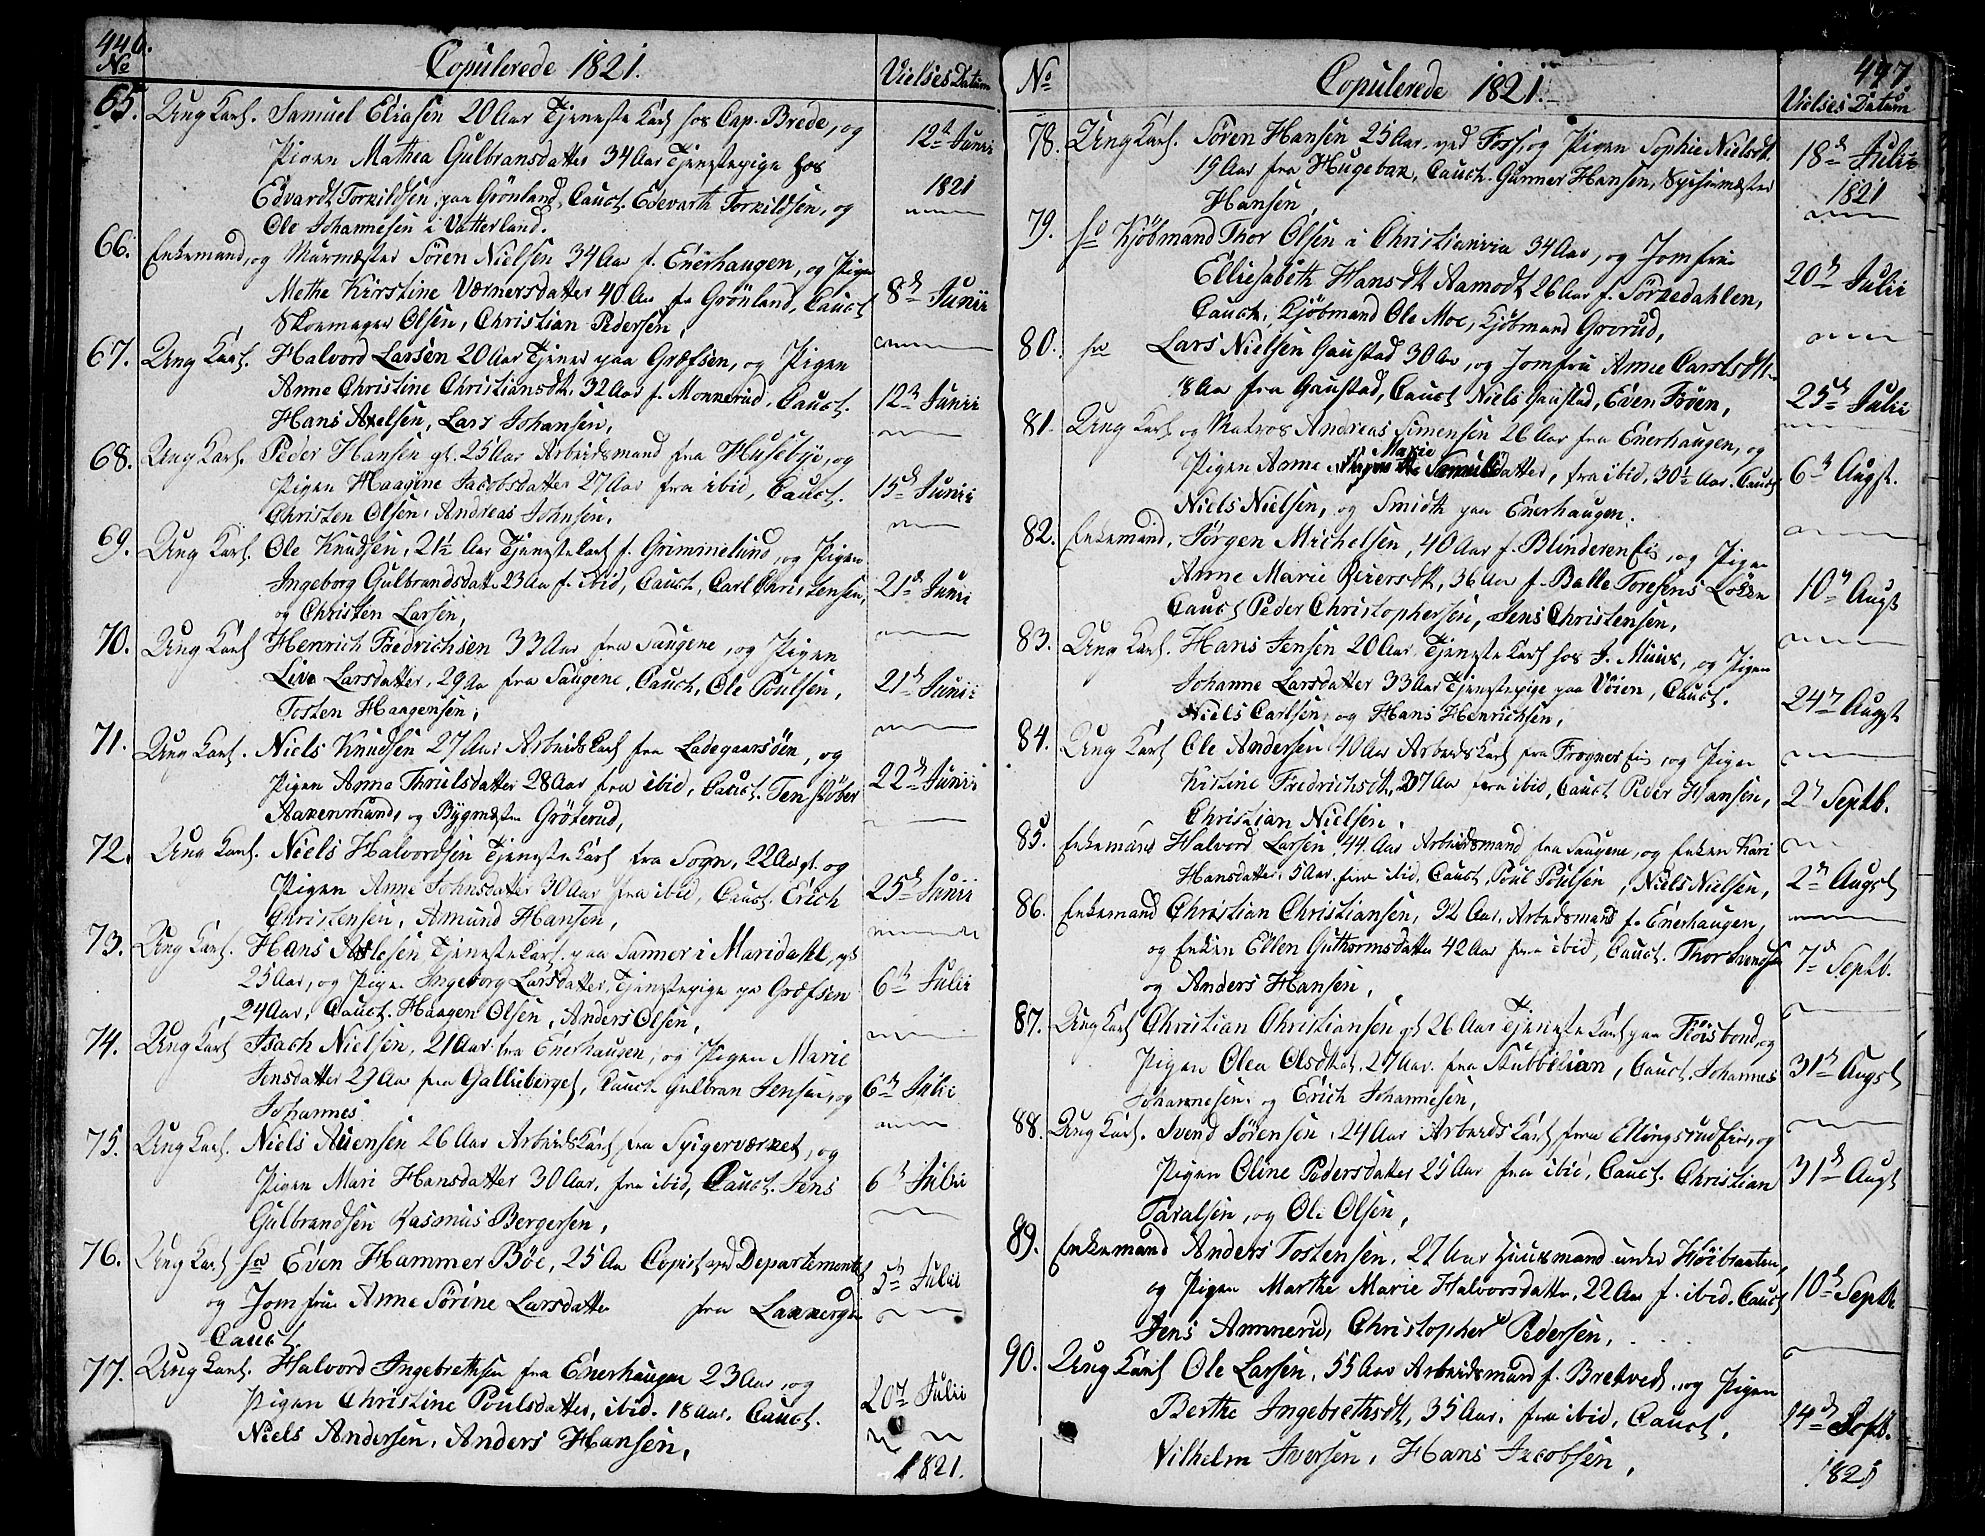 446.
No Copulerede 1821. Vielses Datum
65. Ung Karl. Samuel Eliasen 20 Aar Tjeneste Karl hos Cap. Brede, og 12te Junii
Pigen Mathea Gulbransdatter 34 Aar Tjenestepige hos
Edvardt Torkildsen paa Grønland, Cauct. Edevarth Torkildsen, og 1821
Ole Johannesen i Vatterland.
66. Enkemand, og Murmæster Sören Nielsen 34 Aar f. Enerhaugen, og Pige
Methe Kirstine Værnersdatter 40 Aar fr Grönland, Cauct 8de Junii
Skoemager Olsen, Christian Pedersen,
67. Ung Karl. Halvord Larsen 20 Aar Tjener paa Græfsen, og Pigen
Anne Christine Christiansdtr. 32 Aar f. Monnerud, Cauct. 12te Junii
Hans Axelsen, Lars Johansen,
68. Ung Karl. Peder Hansen gl. 25 Aar Arbeidsmand fra Husebye, og
Pigen Haagine Jacobsdatter 27 Aar fra ibid, Cauct. 15de Junii
Christen Olsen, Andreas Johnsen.
69. Ung Karl. Ole Knudsen, 21½ Aar Tjenestekarl f. Grimmelund, og Pigen
Ingeborg Gulbrandsdatt. 23 Aar f. ibid, Cauct, Carl Christensen, 21de Junii
og Christen Larsen,
70. Ung Karl Henrich Friedrichsen 33 Aar fra Saugene, og Pigen
Live Larsdatter, 29 Aar fra Saugene, Cauct, Ole Poulsen, 21de Junii
Tosten Haagensen,
71. Ung Karl. Niels Knudsen 27 Aar Arbeids Karl fra Ladegaarsöen, og
Pigen Anna Thrulsdatter 28 Aar fra ibid, Cauct. Tenstöber 22de Junii
Aakenmund, og Bygmæster Gröterud,
72. Ung Karl. Niels Halvordsen Tjeneste Karl fra Sogn, 22 Aar gl. og
Pigen Anne Johnsdatter 30 Aar fra ibid, Cauct. Erich 25de Junii
Christensen, Amund Hansen,
73. Ung Karl. Hans Aslesen Tjenestekarl paa Sanner i Maridahl, gl
25 Aar, og Pigen Ingeborg Larsdatter, Tjenestepige pa Græfsen 6te Julii
24 Aar, Cauct. Haagen Olsen, Anders Olsen,
74. Ung Karl Isach Nielsen, 21 Aar fra Enerhaugen, og Pigen Marie
Jensdatter 29 Aar fra Gallieberget, Cauct. Gulbran Jensen, og 6te Julii
Johannes
75. Ung Karl. Niels Auensen 26 Aar Arbeids Karl fra Spigerværket, og
Pigen Mari Hansdatter 30 Aar, fra ibid, Cauct. Jens 6te Julii
Gulbrandsen Rasmus Bergersen,
76. Ung Karl Hr Even Hammer Böe, 25 Aar Copist ved Departementet
og Jomfrue Anne Sörine Larsdatter fra 5te Julii
Cauct
77. Ung Karl. Halvord Ingebrethsen fra Enerhaugen 23 Aar, og
Pigen Christine Poulsdatter, ibid. 18 Aar. Cauct. 20de Julii
Niels Andersen, Anders Hansen,
1821.
447
No Copulerede 1821. Vielses Datum
78. Ung Karl. Sören Hansen 25 Aar, ved Foss, og Pigen Sophie Nielsdt. 18de Julii
19 Aar fra Hugebak, Cauct. Gunner Hansen, Spisemæster 1821
Hansen,
79. Hr Kjöbmand Thor Olsen i Christiania 34 Aar, og Jomfrue
Elliesabeth Hansdtr Aamodt, 26 Aar f. Sörkedahlen, 20de Julii
Cauct: Kjöbmand Ole Moe, Kjöbmand Grorud,
80. Hr Lars Nielsen Gaustad 30 Aar, og Jomfru Anne Carlsdtr.
18 Aar fra Gaustad, Cauct Niels Gaustad, Even Fröen, 25de Julii
81. Ung Karl og Matros Andreas Simensen 26 Aar fra Enerhaugen, og
Marie
Pigen Anne Samuelsdatter, fra ibid, 30½ Aar. Cauct 6te Augst.
Niels Nielsen, og Smidth paa Enerhaugen.
82. Enkemand. Jörgen Michelsen, 40 Aar f. Blinderen Eie, og Pigen
Anne Marie Reiersdtr, 36 Aar f. Balle Toresens Löken 10de Augt
Cauct Peder Christophersen, Jens Christensen,
83. Ung Karl. Hans Jensen 20 Aar Tjeneste Karl hos J. Muus, og Pigen
Johanne Larsdatter 33 Aar Tjenestepige paa Vöien, Cauct. 24de Augst
Niels Carlsen, og Hans Henrichsen,
84. Ung Karl Ole Andersen 40 Aar Arbeids Karl fra Frogner Eie, og Pigen
Kirstine Fredrichsdtr, 37 Aar fra ibid, Cauct Peder Hansen, 2de Septb.
Christian Nielsen.
85. Enkemand Halvord Larsen, 44 Aar Arbeidsmand fra Saugene, og Enken Kari
Hansdatter. 5 Aar fra ibid, Cauct, Poul Poulsen, Niels Nielsen, 2de Augst
86. Enkemand Christian Christiansen, 32 Aar, Arbeidsmand f. Enerhaugen,
og Enken Ellen Guthormsdatter 42 Aar fra ibid, Cauct. Thor Svendsen 7de Septb.
og Anders Hansen,
87. Ung Karl Christian Christiansen gl 26 Aar Tjeneste Karl paa Flöisbond, og
Pigen Olea Olsdtr, 27 Aar. fra Stubbelian, Cauct. Johannes 31te Augst
Johannesen. og Erich Johannesen,
88. Ung Karl. Svend Sörensen, 24 Aar Arbeids Karl fra Ellingsrud Eie, og
Pigen Oline Pedersdatter 25 Aar fra ibid, Cauct. Christian 31te Augt
Taralsen, og Ole Olsen,
89. Enkemand Anders Tostensen, 27 Aar Huusmand under Höibraaten,
og Pigen Marthe Marie Halvorsdatter, 22 Aar f. ibid. Cauct 10de Septb
Jens Ammerud, Christopher Pedersen,
90. Ung Karl Ole Larsen, 55 Aar Arbeidsmand f. Bretved, og Pigen
Berthe Ingebrethsdt, 35 Aar, fra ibid, Cauct. 14de Septb.
Vilhelm Iversen, Hans Jacobsen,
1821